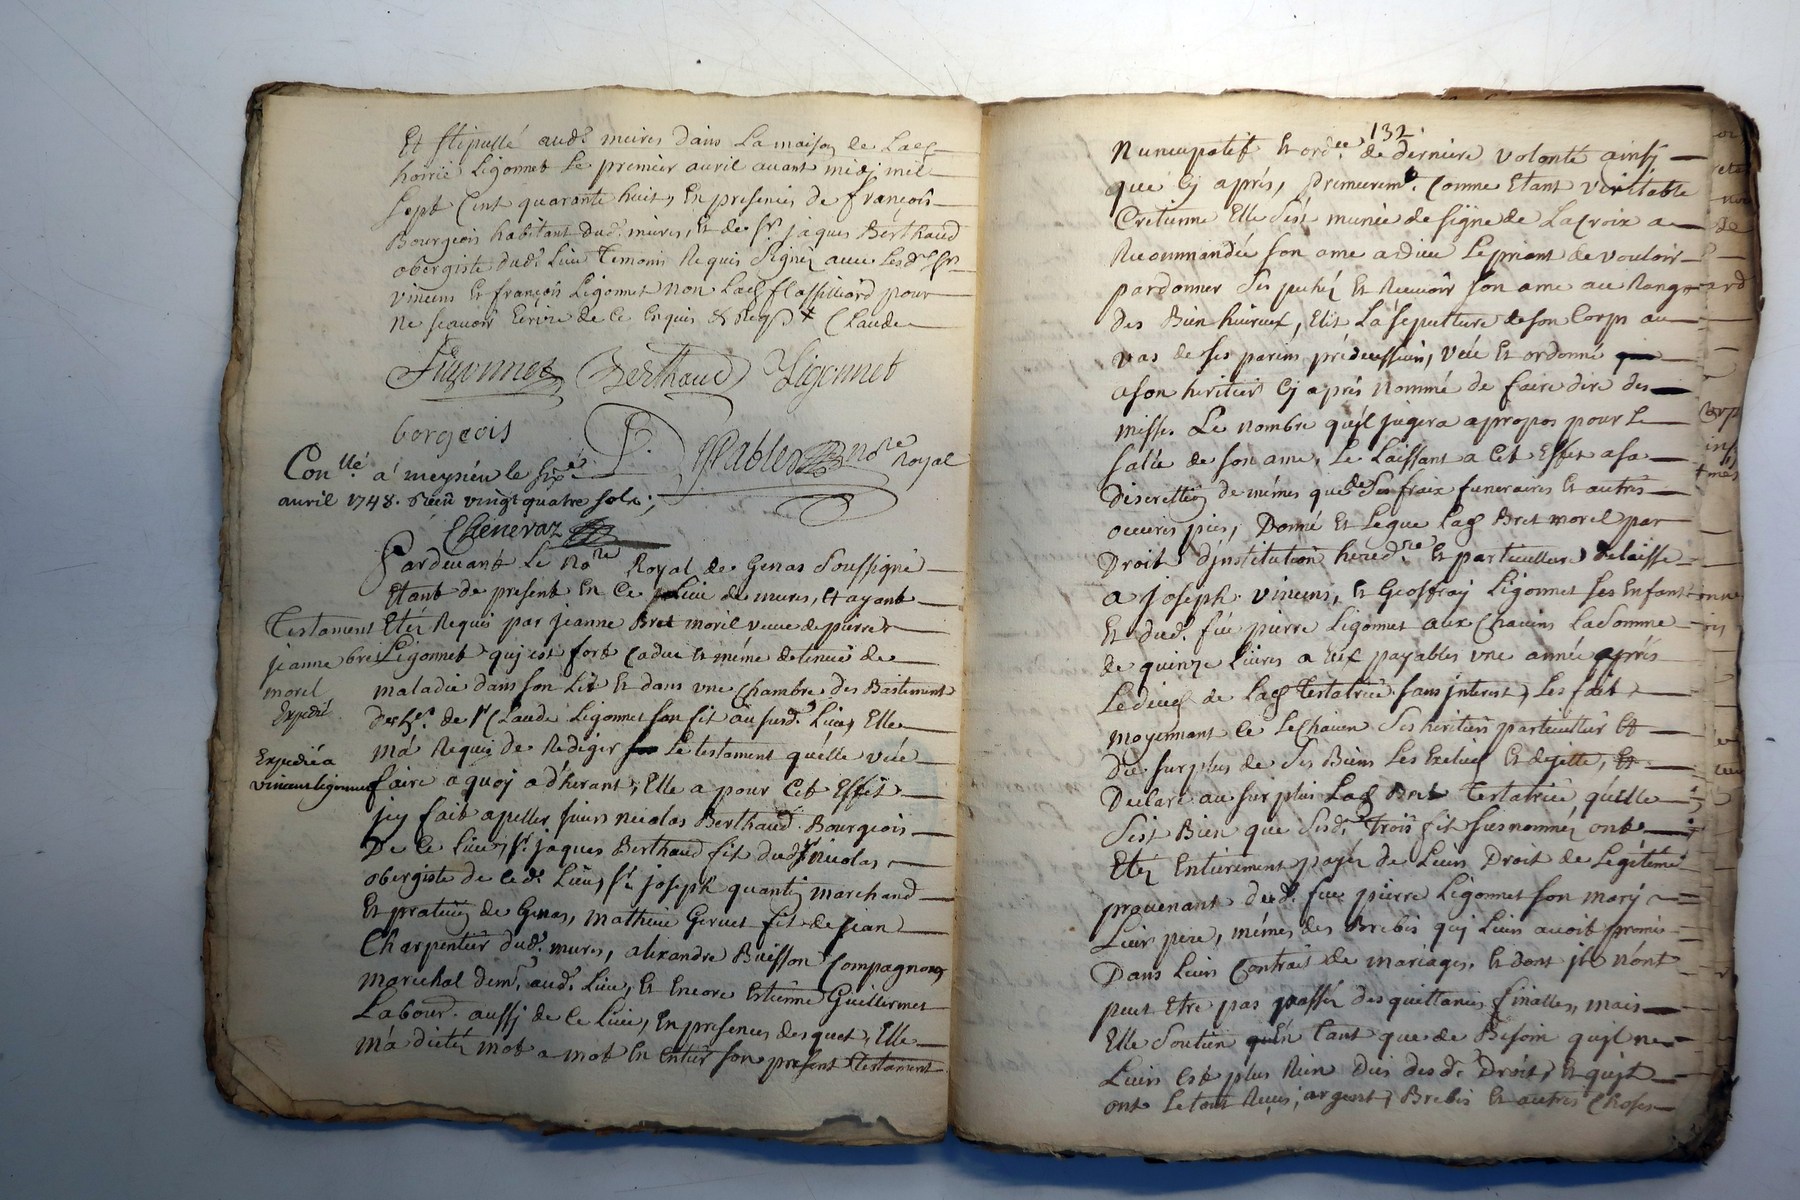 Et stipullé aud.t meires dans La maison de Lad.
hoirie Ligonnet Le premier avril avant midi mil
sept Cent quarante huit, En presences de françois
Bourgeois habitant dud.t mures, et de S.r jaques Berthaud
obergiste dud.t Lieu Temoins Requis Signez avec Lesd.ts S.rs
vincens Et françois Ligonnet non Lad. flassilliard pour
ne scavoir Ecrire de Ce Enquis & Req. + Claude
Ligonnet Berthaud Ligonnet
borgeois
Pablen no.re Royal
Con.llé á meysieu le six.e
avril 1748. Receu vingt quatre sols;
Chenevaz
Pardevant Le No.re Royal de Genas Soussigné
Etant de present En Ce Lieu de mures, Et ayant
Testament Etéz Requis par jeanne Bret moril veuve de pierre
jeanne bret Ligonnet quj est fort Caduc Et méme detenue de
morel maladie dans son Lit Et dans vne Chambre des Bastiment
Expedié
des h.rs de S.r Claude Ligonnet son fit au susd.t Lieu, Elle
Expedié a
vincent ligonnet
má Requis de Rediger Le testament quélle veut
faire a quoj adhérant, Elle a pour Cet Effet
jcy fait apeller sieurs nicolas Berthaud Bourgeois
De Ce Lieu, S.r jaques Berthaud fit dud.t S.r nicolas
obergiste de ced.t Lieu, S.r joseph quantin marchand
Et praticien de Genas, mathieu Gervet fit de jean
Charpentier dud.t mures, alexandre Buisson Compagnon
marechal dem.t aud.t Lieu, Et Encore Estienne Guillermet
Labour. aussj de Ce Lieu, En presences desquel, Elle
má dictéz mot a mot En Entier son present Testament
132
Nuncupatif Et ord.ce de derniere volonté ainsj
que Cj aprés, Premierem.t Comme Etant veritable
Cretienne Elle Sést munie de signe de La Croix a
Recommandée son ame a dieu Le priant de vouloir
pardonner Ses pechéz Et Recevoir son ame au Rang
des Bien heureux, Elit La sepulture de son Corps au
vas de ses parens prédecesseurs, veut Et ordonne
a son heritier Cj aprés nommé de faire dire des
messes Le nombre quíl jugera apropos pour Le
salut de son ame, Le Laissant a Cet Effet a sa
Discrettion de mémes que de Ses fraix funeraires Et autres
oeuvres pies, Donne Et Legue Lad. Bret morel par
Droit d'jnstitution hered.re Et particulliere delaisse
a joseph, vincens, Et Geoffray Ligonnet ses Enfant
Et dud.t feu pierre Ligonnet aux Chacuns La Somme
de quinze Livres a Eux payables vne année aprés
Le deces de Lad. Testatrice Sans jnterest, Les fait
moyennant Ce Le Chacun Ses heritiers particulliers Et
Du surplus de Ses Biens Les Exclus Et dejette,
Declare au surplus Lad. Bret Testatrice, quélle
Sçait Bien que Sesd.ts trois fit susnomméz ont
Etéz Entierement payéz de Leurs Droit de Legitime
provenant dud.t feu pierre Ligonnet son marj
Leur pere, mémes des Brebis quj Leurs avoit promis
Dans Leurs Contrais de mariages, Et dont jls n'ont
peut Etre pas passéz des quittances finalles, mais
Elle Soutien quén tant que de Besoin quíl ne
Leurs Est plus Rien Dus desd.ts Droits, Et quílt
ont Le tout Reçus, argent, Brebis Et autres Choses